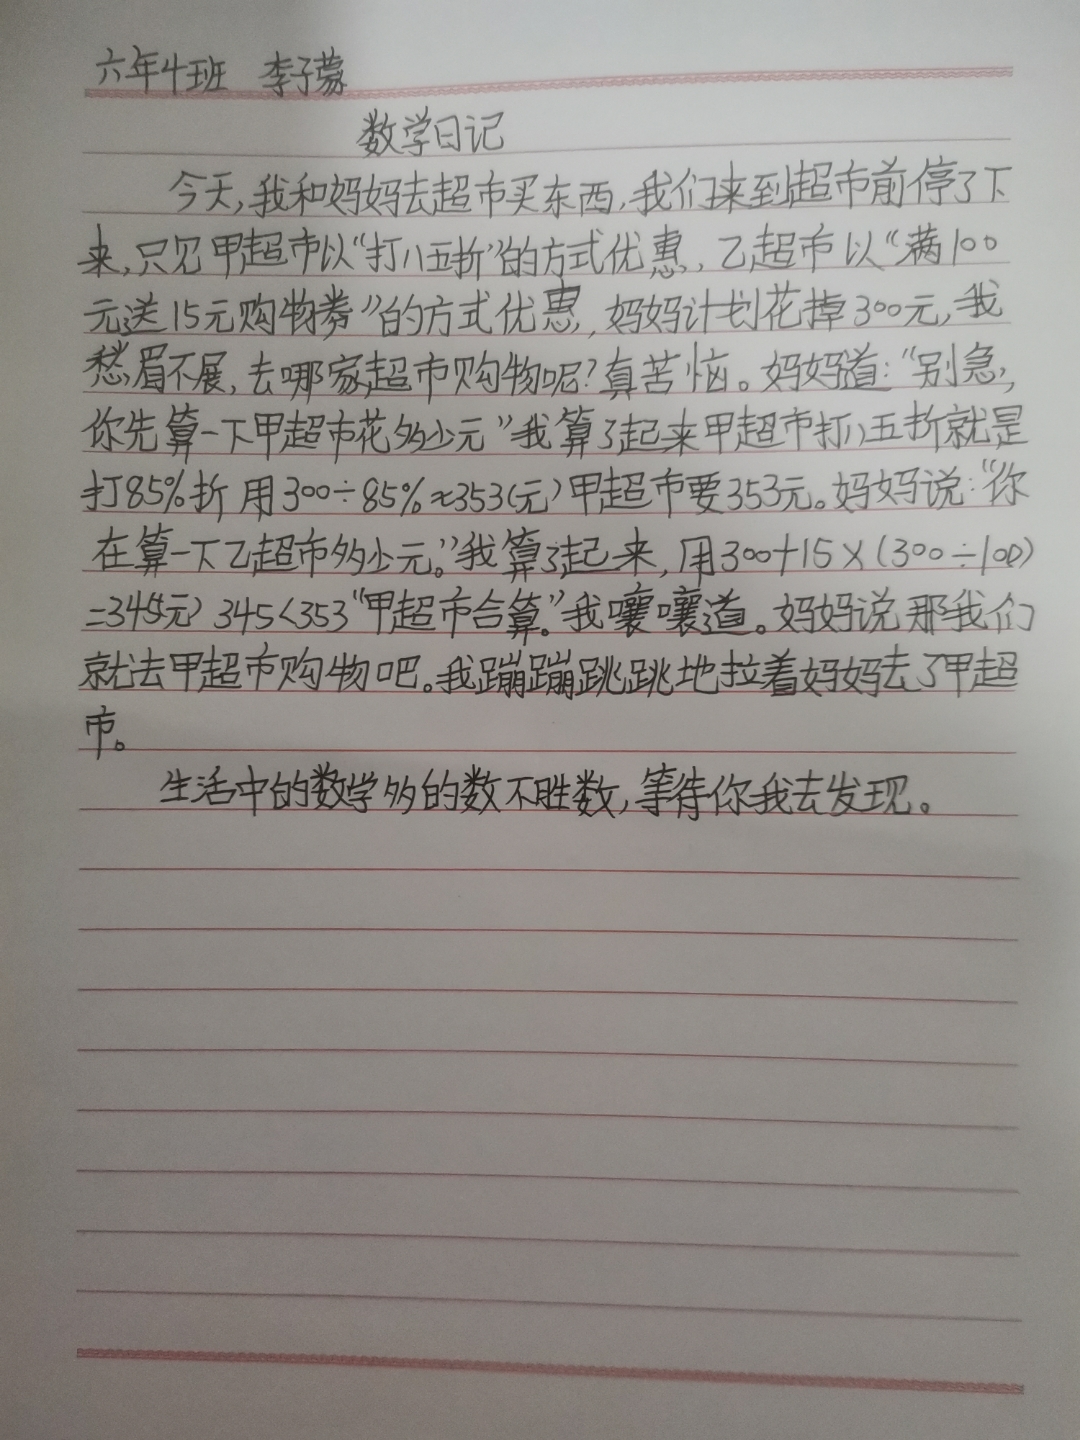 六年4班 李子蒙
数学日记
今天,我和妈妈去超市买东西,我们来到超市前停了下
来,只见甲超市以“打八五折”的方式优惠,乙超市以“满100
元送15元购物券”的方式优惠,妈妈计划花掉300元,我
愁眉不展,去哪家超市购物呢?真苦恼。妈妈道:“别急,
你先算一下甲超市花多少元”我算了起来甲超市打八五折就是
打85%折用300÷85%≈353(元)甲超市要353元。妈妈说:“你
在算一下乙超市多少元。”我算了起来,用300+15×(300÷100)
=345(元)345<353“甲超市合算。”我嚷嚷道。妈妈说那我们
就去甲超市购物吧。我蹦蹦跳跳地拉着妈妈去了甲超
市。
生活中的数学多的数不胜数,等待你我去发现。